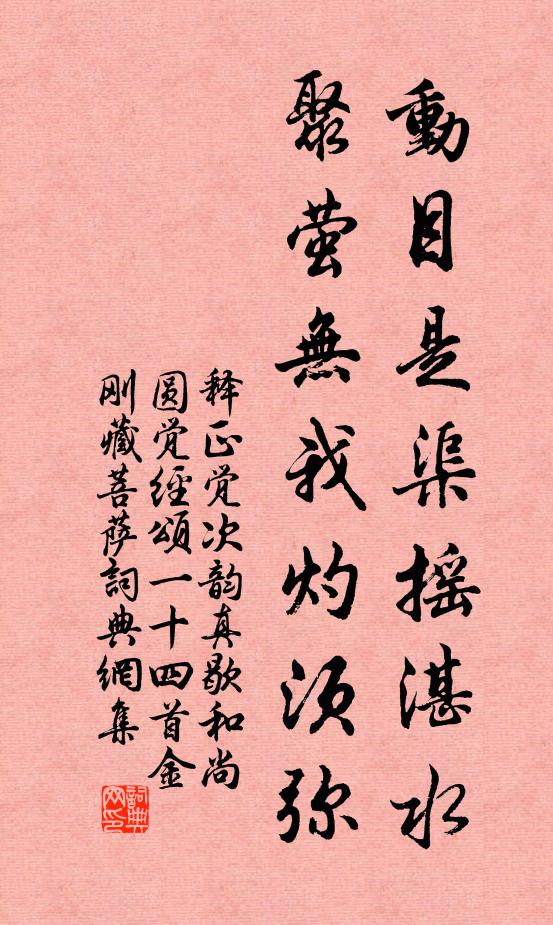 動目是渠摇湛水
聚萤無我灼须弥
释正觉次韵真歇和尚
圆觉經頌一十四首金
刚藏菩萨詞典網集
詞典网印